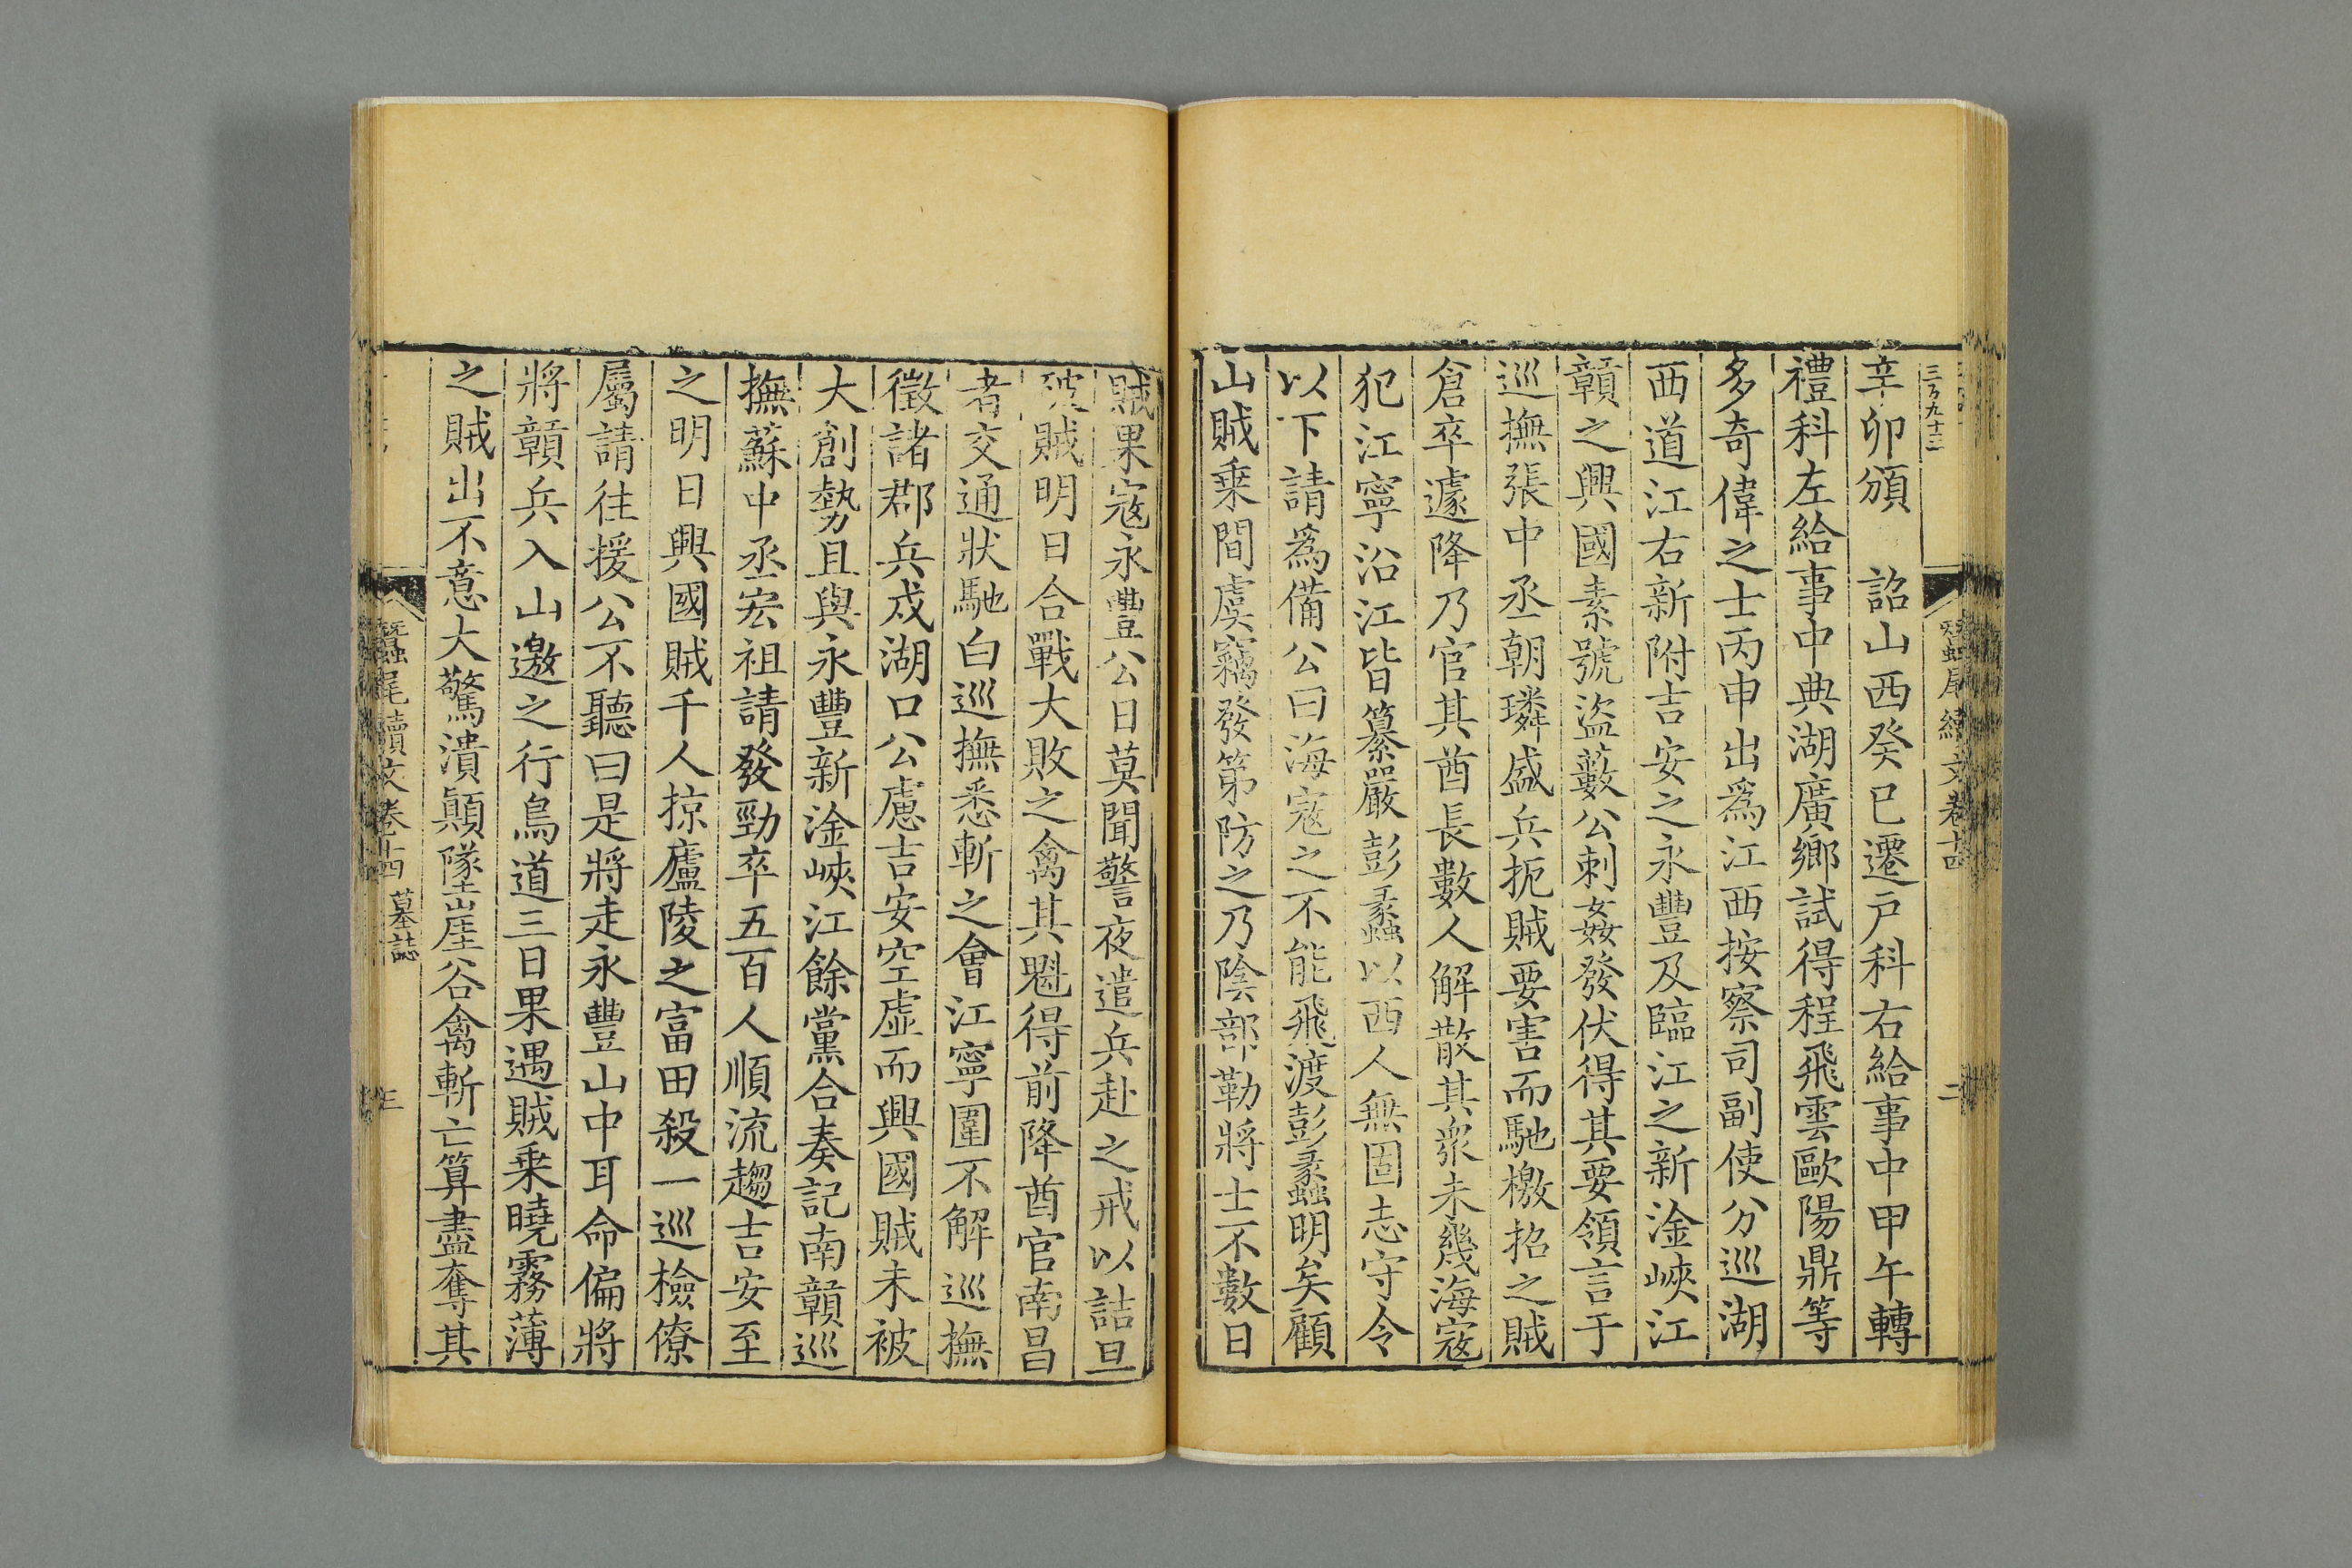 三百九十三
蠶尾續文卷十四
二
辛卯頒 詔山西癸巳遷戸科右給事中甲午轉
禮科左給事中典湖廣鄉試得程飛雲歐陽鼎等
多奇偉之士丙申出爲江西按察司副使分巡湖
西道江右新附吉安之永豐及臨江之新淦峽江
贛之興國素號盜藪公刺姦發伏得其要領言于
巡撫張中丞朝璘盛兵扼賊要害而馳檄招之賊
倉卒遽降乃官其酋長數人解散其衆未幾海寇
犯江寧沿江皆纂嚴彭蠡以西人無固志守令
以下請爲備公曰海寇之不能飛渡彭蠡明矣顧
山賊乗間虞竊發第防之乃陰部勒將士不數日
賊果寇永豐公日莫聞警夜遣兵赴之戒以詰旦
破賊明日合戰大敗之禽其魁得前降酋官南昌
者交通狀馳白巡撫悉斬之會江寧圍不解巡撫
徵諸郡兵戍湖口公慮吉安空虛而興國賊未被
大創勢且與永豐新淦峽江餘黨合奏記南贛巡
撫蘇中丞宏祖請發勁卒五百人順流趨吉安至
之明日興國賊千人掠廬陵之富田殺一巡檢僚
屬請往援公不聽曰是將走永豐山中耳命偏將
將贛兵入山邀之行鳥道三日果遇賊乗曉霧薄
之賊出不意大驚潰顚墜崖谷禽斬亡算盡奪其
蠶尾續文卷十四 墓誌
三